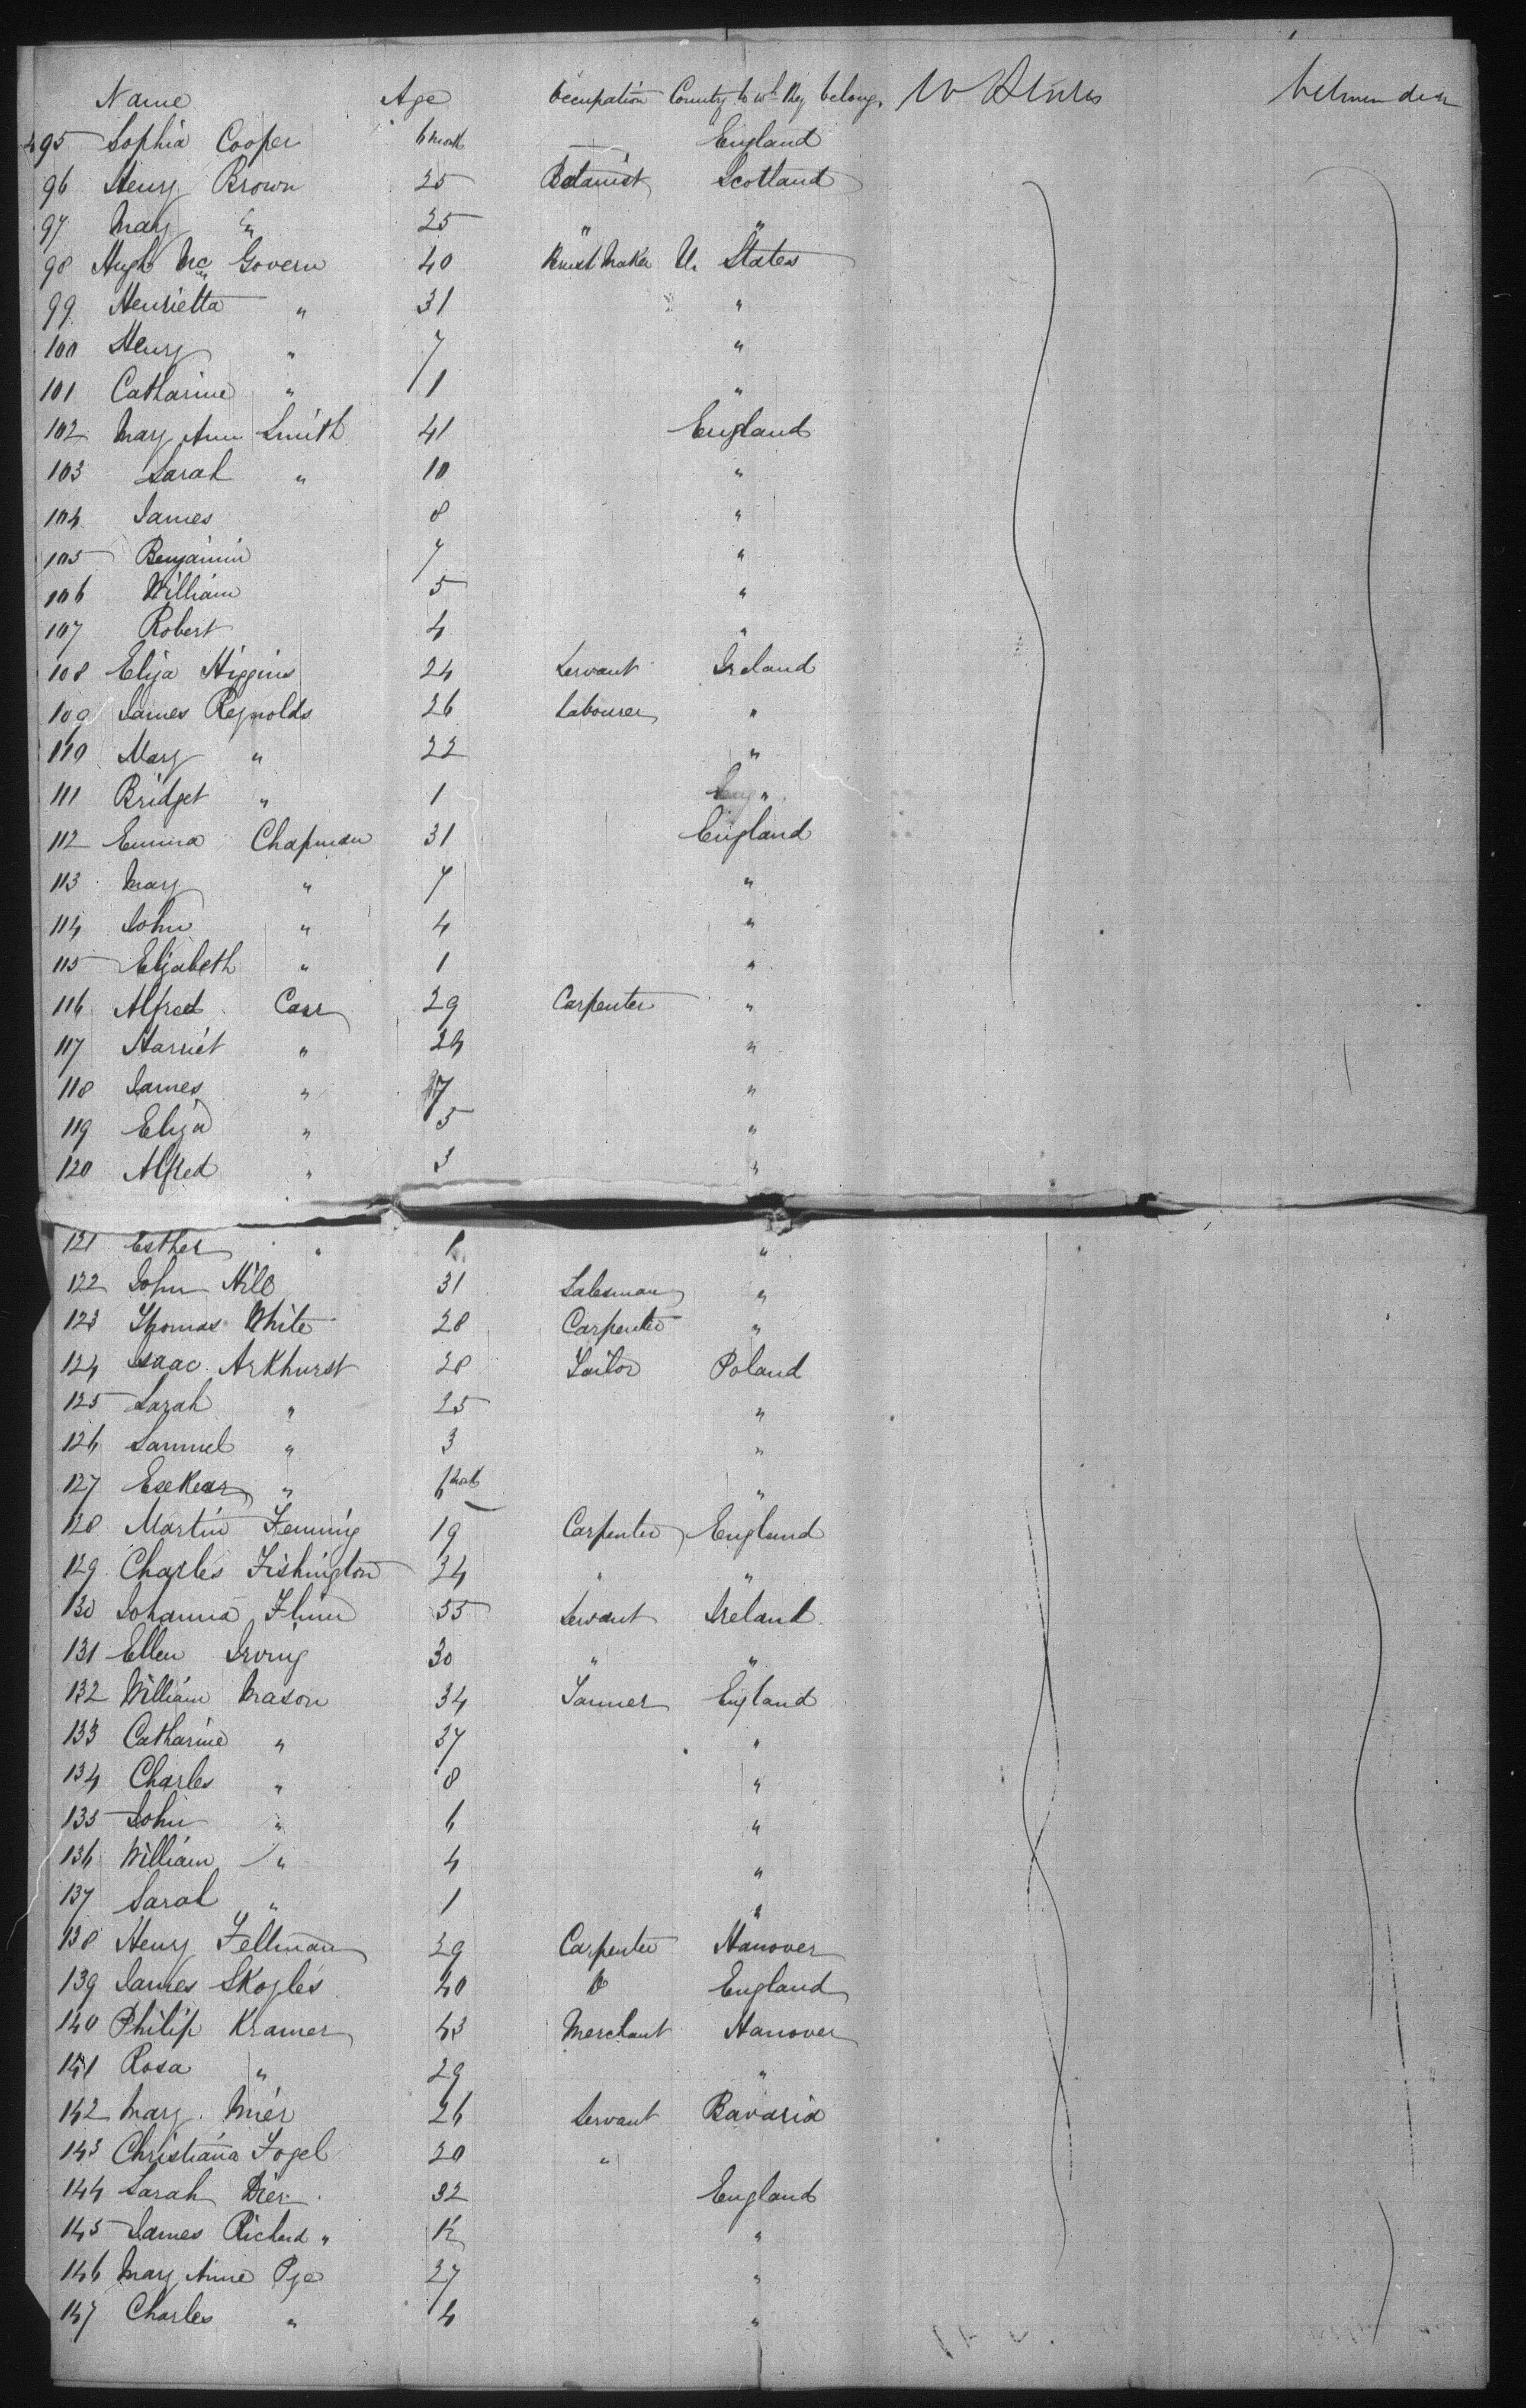 Name Age Occupation Country to wh they belong. U States between deck
495 Sophia Cooper 6 month — England
96 Henry Brown 25 Botanist Scotland
97 Mary " 25 " "
98 Hugh Mc Govern 40 Maker U. States
99 Henrietta " 31 "
100 Henry " 7 "
101 Catharine " 1 "
102 Mary Ann Smith 41 England
103 Sarah " 10 "
104 James 8 "
105 Benjamin 7 "
106 William 5 "
107 Robert 4 "
108 Eliza Higgins 24 Servant Ireland
109 James Reynolds 26 Labourer "
110 Mary " 22 "
111 Bridget " 1 "
112 Emma Chapman 31 England
113 Mary " 7 "
114 John " 4 "
115 Elizabeth " 1 "
116 Alfred Carr 29 Carpenter "
117 Harriet " 24 "
118 James " 7 "
119 Eliza " 5 "
120 Alfred " 3 "
121 Esther " 1 "
122 John Hill 31 Salesman "
123 Thomas White 28 Carpenter "
124 Isaac Arkhurst 28 Tailor Poland
125 Sarah " 25 "
126 Samuel " 3 "
127 " 6 "
128 Martin Fenning 19 Carpenter England
129 Charles Fishington 24 " "
130 Johanna Flinn 55 Servant Ireland
131 Ellen Irving 30 " "
132 William Mason 34 Tanner England
133 Catharine " 37 "
134 Charles " 8 "
135 John " 6 "
136 William " 4 "
137 Sarah " 1 "
138 Henry Fellman 29 Carpenter Hanover
139 James Skogles 40 Do England
140 Philip Kramer 43 Merchant Hanover
141 Rosa " 29 "
142 Mary Mier 26 Servant Bavaria
143 Christiana Fogel 20 "
144 Sarah 32 England
145 James Richard " 1½ "
146 Mary Anne Pye 27 "
147 Charles " 4 "